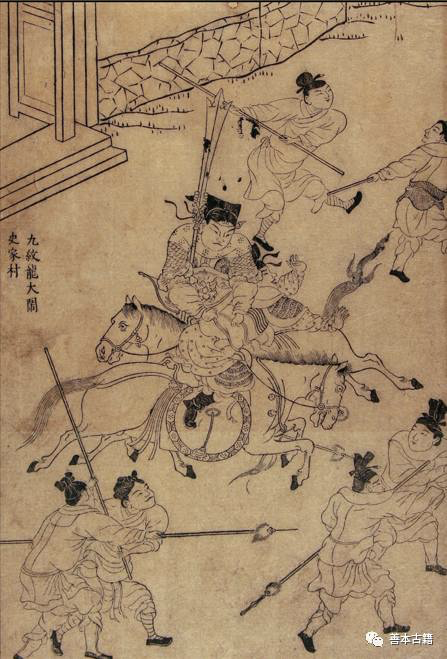 九紋龍大鬧
史家村
善本古籍